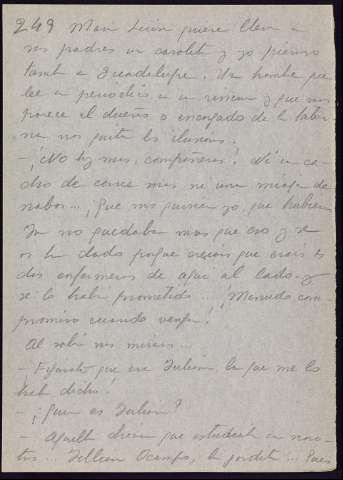 249 Mari Luisa quiere llevar a
sus padres un cacolit y yo pienso
tamb a Guadalupe. Un hombre que
lee un periodico en un rincon y que nos
parece el dueño o encargado de la taber
na nos quita las ilusiones.
- ¡No hay mas, compañeras! Ni un ca-
cho de carne mas ni una miaja de
nabos... ¡Que mas quisiera yo que hubiera
Ya no quedaba mas que eso y se
os ha dado porque creian que erais las
dos enfermeras de aqui al lado y
se lo habia prometido... ¡Menudo com-
promiso cuando vengan!
Al salir nos miramos...
- Figurate que era Julian, la que me lo
habia dicho!
- ¿Quien es Julian?
- Aquella chica que estudiaba con noso-
tros... Julian Ocampo, la gordita... Pues